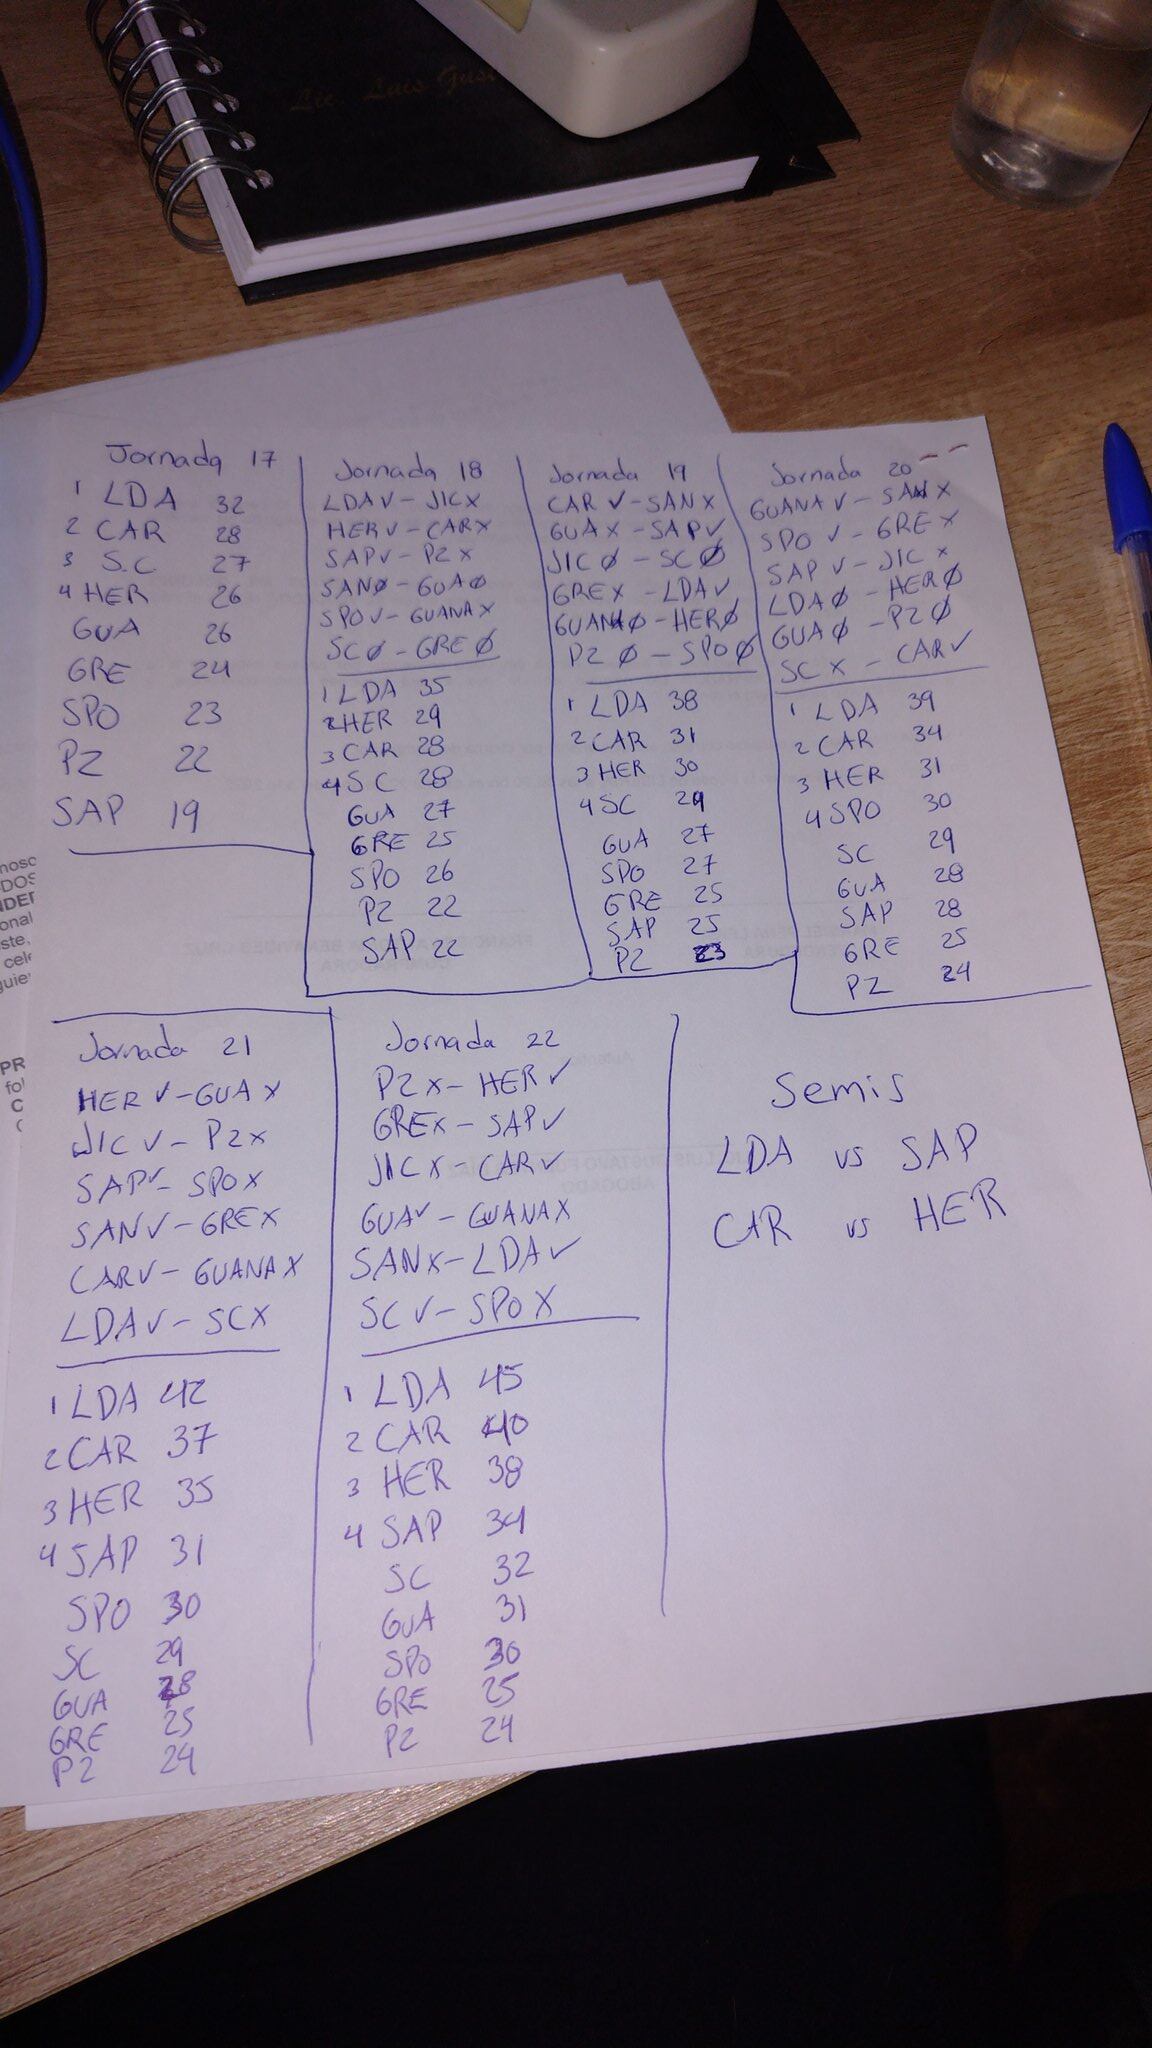 Lic. Luis Gus
Jornada 17
1 LDA 32
2 CAR 28
3 S.C 27
4 HER 26
GUA 26
GRE 24
SPO 23
PZ 22
SAP 19
Jornada 18
LDA✓ - JICX
HER✓ - CARX
SAP✓ - PZX
SANØ - GUAØ
SPO✓ - GUANAX
SCØ - GREØ
1 LDA 35
2 HER 29
3 CAR 28
4 SC 28
GUA 27
GRE 25
SPO 26
PZ 22
SAP 22
Jornada 19
CAR✓ - SANX
GUAX - SAP✓
JICØ - SCØ
GREX - LDA✓
GUANAØ - HERØ
PZØ - SPOØ
1 LDA 38
2 CAR 31
3 HER 30
4 SC 29
GUA 27
SPO 27
GRE 25
SAP 25
PZ 23
Jornada 20
GUANA✓ - SANX
SPO✓ - GREX
SAP✓ - JICX
LDAØ - HERØ
GUAØ - PZØ
SCX - CAR✓
1 LDA 39
2 CAR 34
3 HER 31
4 SPO 30
SC 29
GUA 28
SAP 28
GRE 25
PZ 24
Jornada 21
HER✓ - GUAX
JIC✓ - PZX
SAP✓ - SPOX
SAN✓ - GREX
CAR✓ - GUANAX
LDA✓ - SCX
1 LDA 42
2 CAR 37
3 HER 35
4 SAP 31
SPO 30
SC 29
GUA 28
GRE 25
PZ 24
Jornada 22
PZX - HER✓
GREX - SAP✓
JICX - CAR✓
GUA✓ - GUANAX
SANX - LDA✓
SC✓ - SPOX
1 LDA 45
2 CAR 40
3 HER 38
4 SAP 34
SC 32
GUA 31
SPO 30
GRE 25
PZ 24
Semis
LDA vs SAP
CAR vs HER